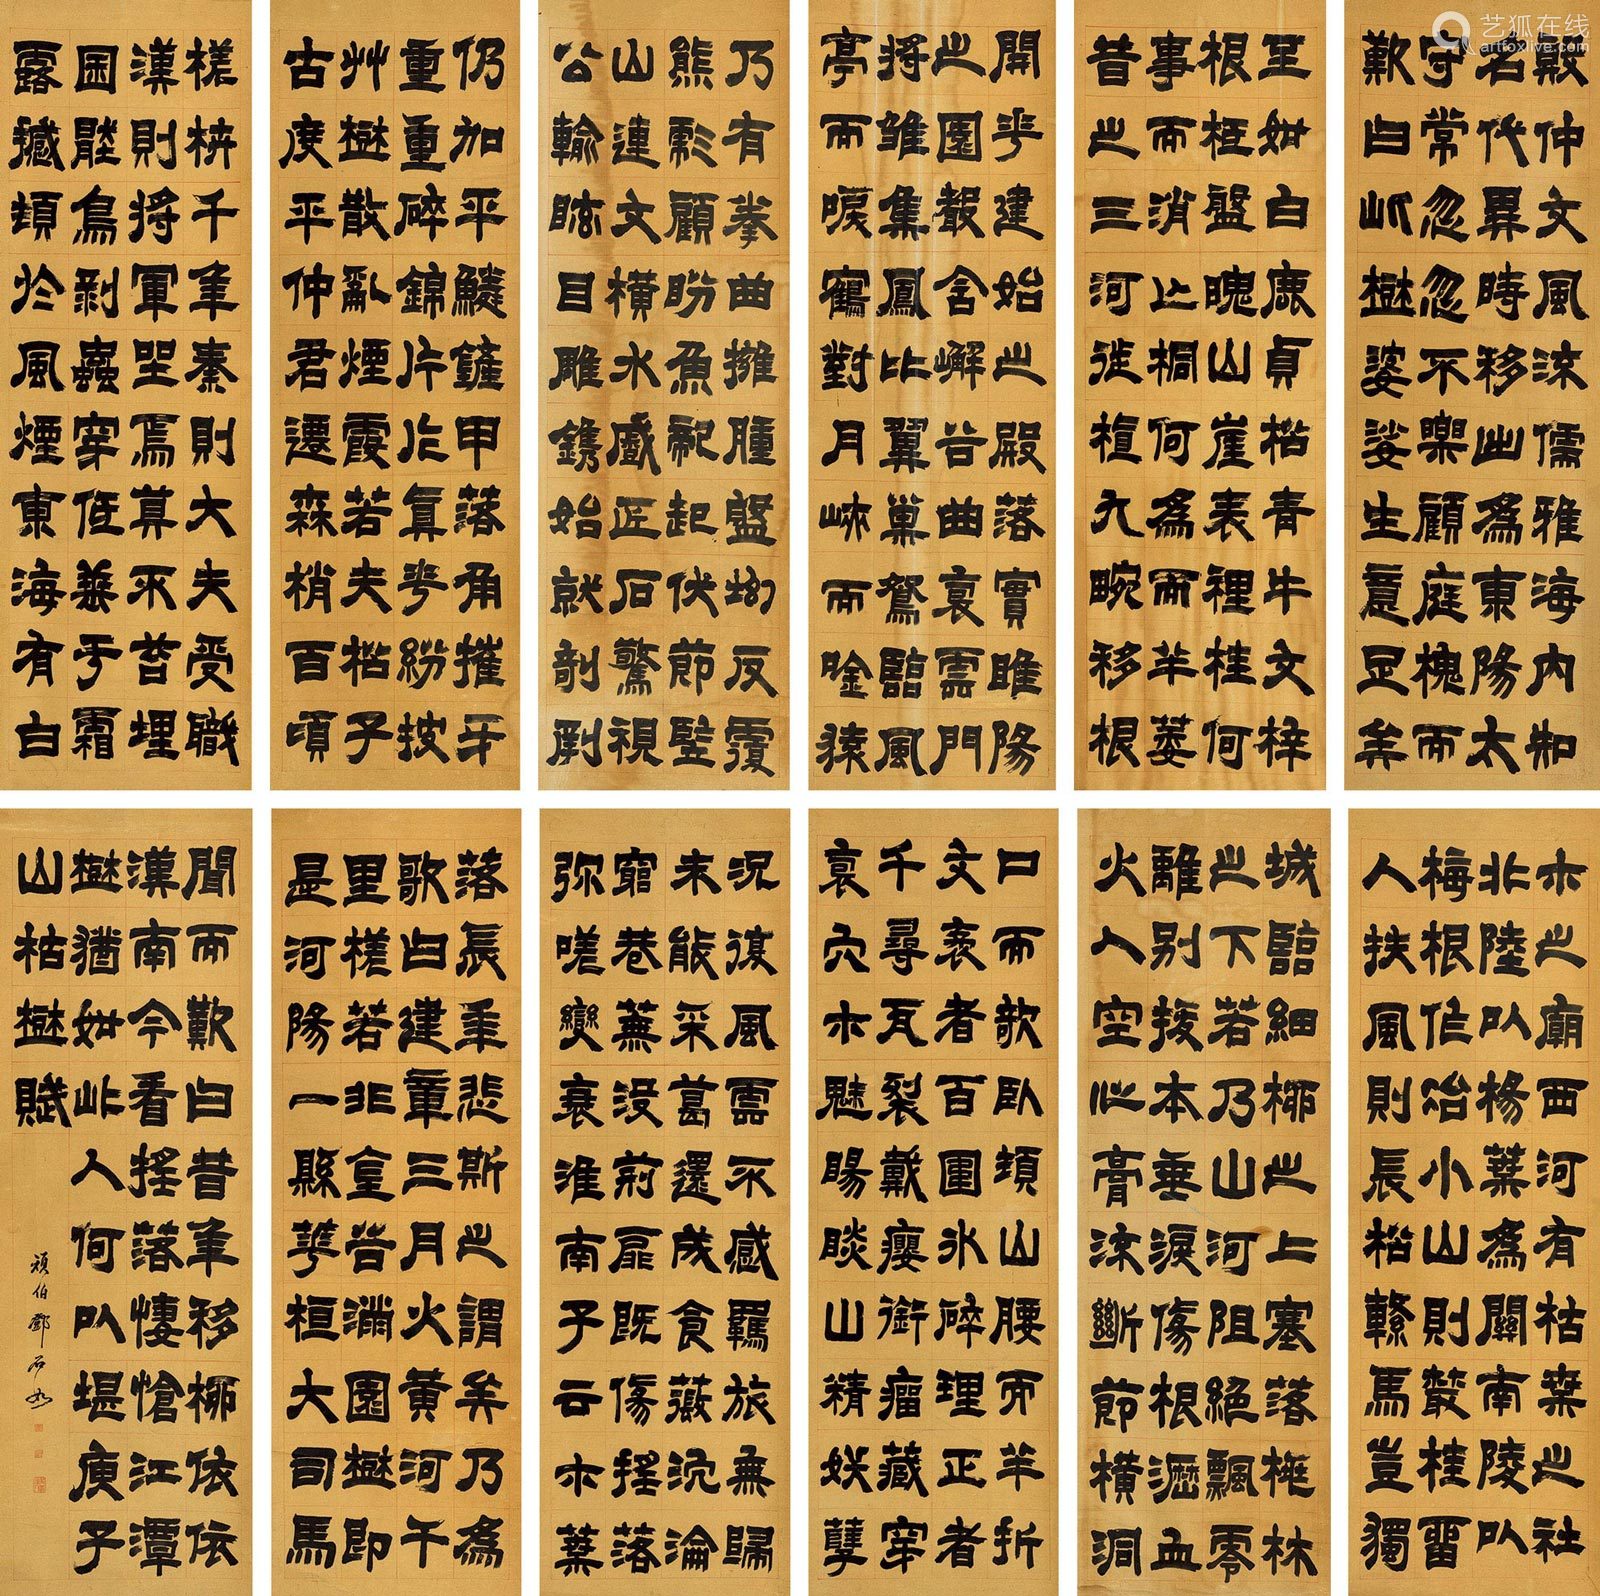 殷仲文風流儒雅海內知
名代異時移出為東陽太
守常忽忽不樂顧庭槐而
歎曰此樹婆娑生意盡矣
至如白鹿貞松青牛文梓
根柢盤魄山崖表裡桂何
事而消亡桐何為而半萎
昔之三河徙植九畹移根
開華建始之殿落實睢陽
之園聲含嶰谷曲袌雲門
將雛集鳳比翼巢鴛臨風
亭而唳鶴對月峽而唫猿
乃有拳曲擁腫盤坳反覆
熊彪顧盼魚龍起伏節豎
山連文橫水蹙匠石驚視
公輸眩目雕鐫始就剞劂
仍加平鱗鏟甲落角摧牙
重重碎錦片片真華紛披
艸樹散亂煙霞若夫松子
古度平仲君遷森梢百頃
槎枿千年秦則大夫受職
漢則將軍坐焉莫不苔埋
囷壓鳥剝蟲穿低垂于霜
露撼頓於風煙東海有白
木之廟西河有枯桑之社
北陸以楊葉為關南陵以
梅根作冶小山則叢桂留
人扶風則長松繫馬豈獨
城臨細柳之上塞落桃林
之下若乃山河阻絕飄零
離別拔本垂淚傷根瀝血
火入空心膏流斷節橫洞
口而欹臥頓山腰而半折
文衺者百圍冰碎理正者
千尋瓦裂戴癭銜瘤藏穿
袌穴木魅睗睒山精妖孽
況復風雲不感羈旅無歸
未能采葛還成食薇沉淪
窮巷蕪沒荊扉既傷搖落
彌嗟變衰淮南子云木葉
落長年悲斯之謂矣乃為
歌曰建章三月火黃河千
里槎若非金谷滿園樹即
是河陽一縣華桓大司馬
聞而歎曰昔年移柳依依
漢南今看搖落悽愴江潭
樹猶如此人何以堪庾子
山枯樹賦
頑伯鄧石如
艺狐在线
artfoxlive.com